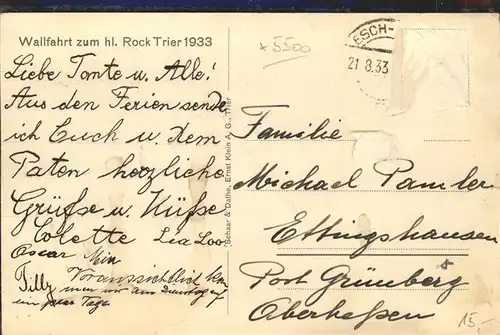 Wallfahrt zum hl. Rock Trier 1933
Liebe Tante u. Alle!
Aus den Ferien sende
ich Euch u. dem
Paten herzliche
Grüße u. Küsse
Colette Lea Loo
Oscar
Tilly Voraussichtlich
men wir am Dienstag auf
ein paar Tage
Schaar & Dathe, Ernst Klein A.G., Trier
+5500
ESCH-
21 8.33
Familie
Michael Pamler
Ettingshausen
Post Grünberg
Oberhessen
15,-